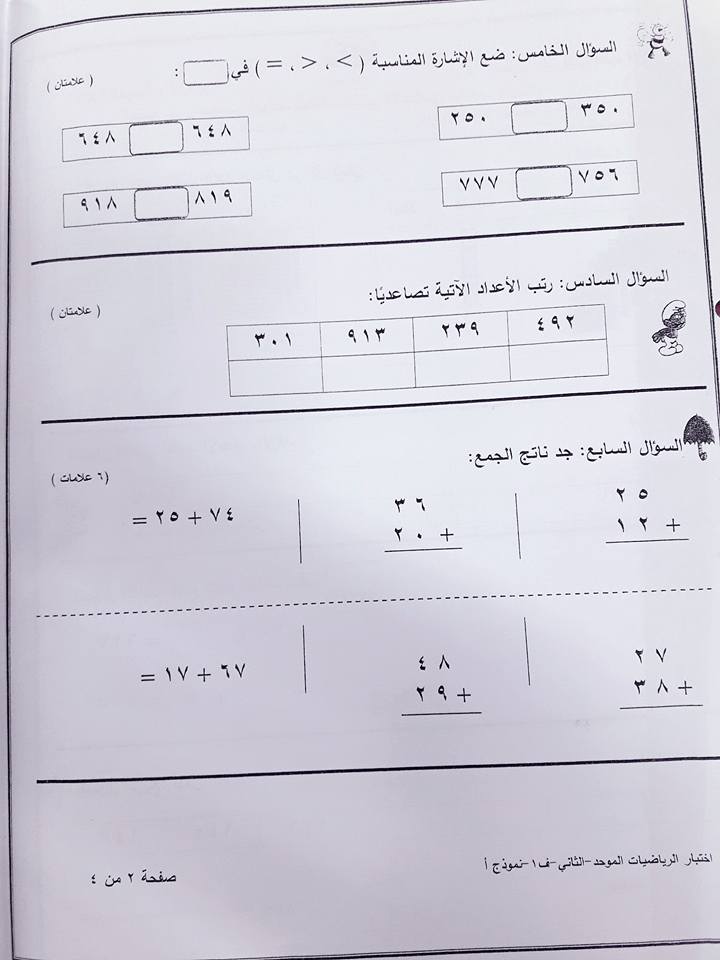 السؤال الخامس: ضع الإشارة المناسبة ( < ، > ، = ) في :
( علامتان )
٣٥٠ ٢٥٠
٦٤٨ ٦٤٨
٧٥٦ ٧٧٧
٨١٩ ٩١٨
السؤال السادس: رتب الأعداد الآتية تصاعديًا:
( علامتان )
٤٩٢ ٢٣٩ ٩١٣ ٣٠١
السؤال السابع: جد ناتج الجمع:
( ٦ علامات )
٢٥ ٣٦ ٧٤ + ٢٥ =
+ ١٢ + ٢٠
٢٧ ٤٨ ٦٧ + ١٧ =
+ ٣٨ + ٢٩
اختبار الرياضيات الموحد-الثاني-ف١-نموذج أ
صفحة ٢ من ٤